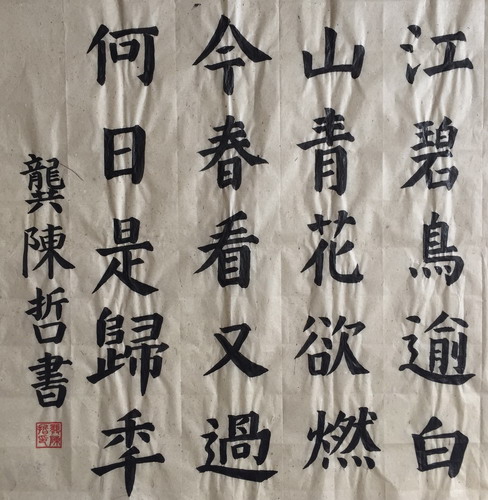 江碧鳥逾白
山青花欲燃
今春看又過
何日是歸年
龔陳哲書